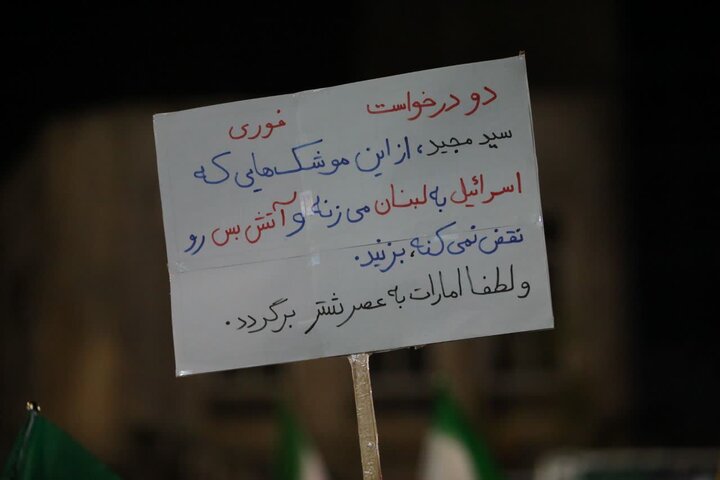 دو درخواست فوری
سید مجید، از این موشک‌هایی که
اسرائیل به لبنان می‌زنه و آتش بس رو
نقض نمی‌کنه، بزنید.
و لطفا امارات به عصر شتر برگردد.